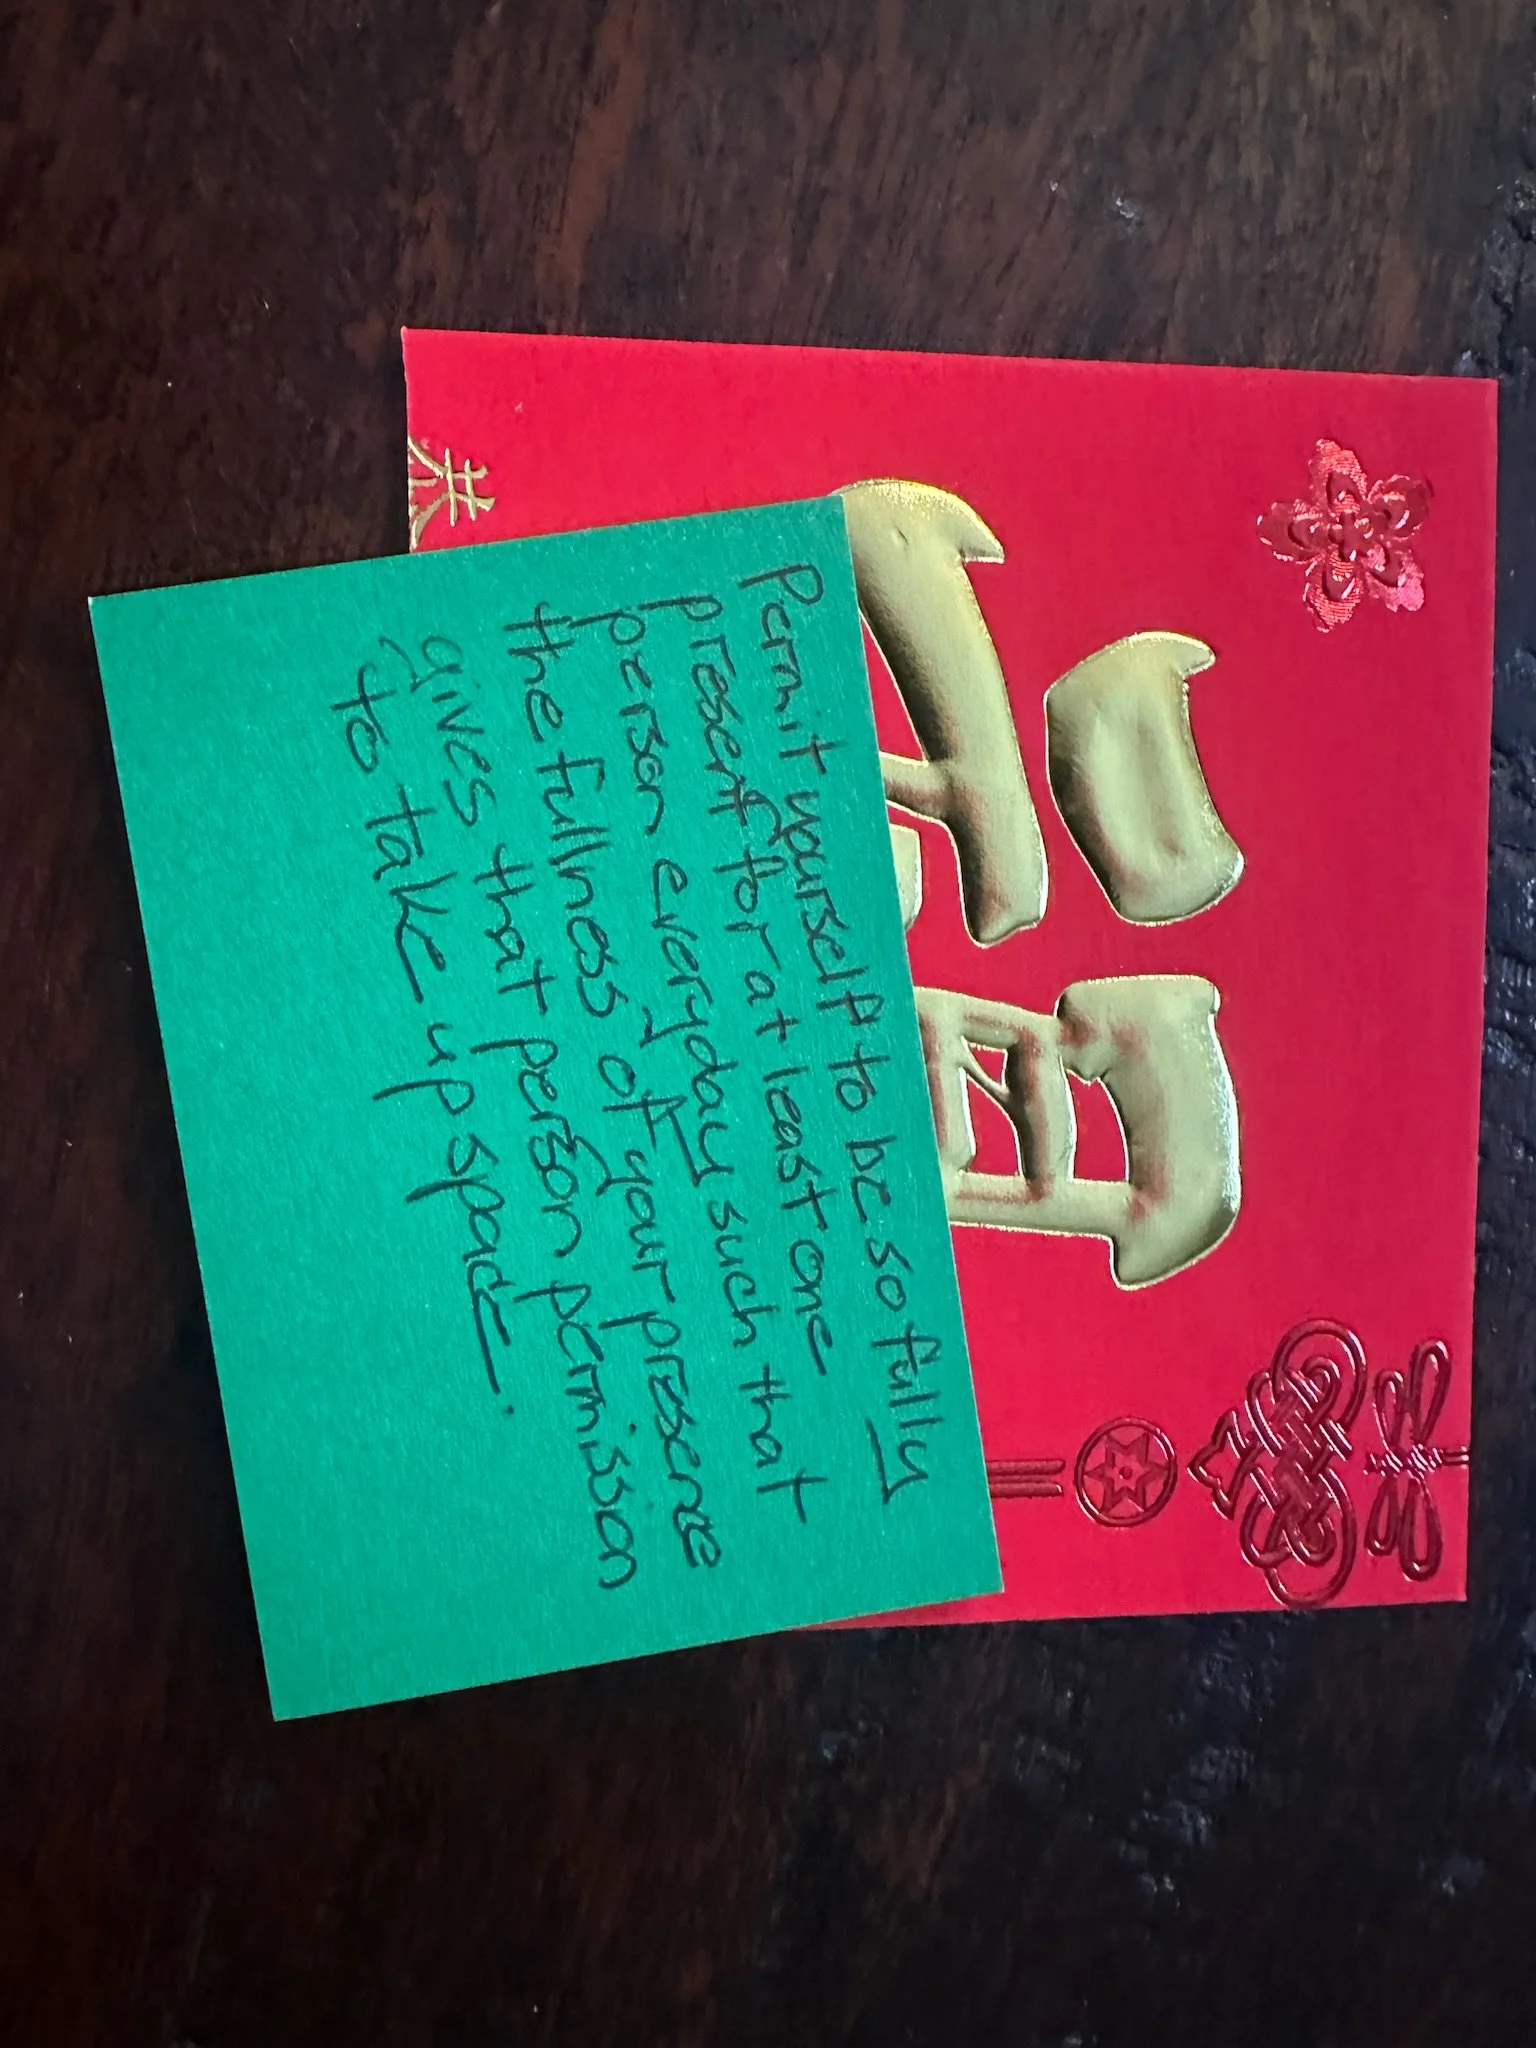 Permit yourself to be so fully
present for at least one
person everyday such that
the fullness of your presence
gives that person permission
to take up space.
恭
福